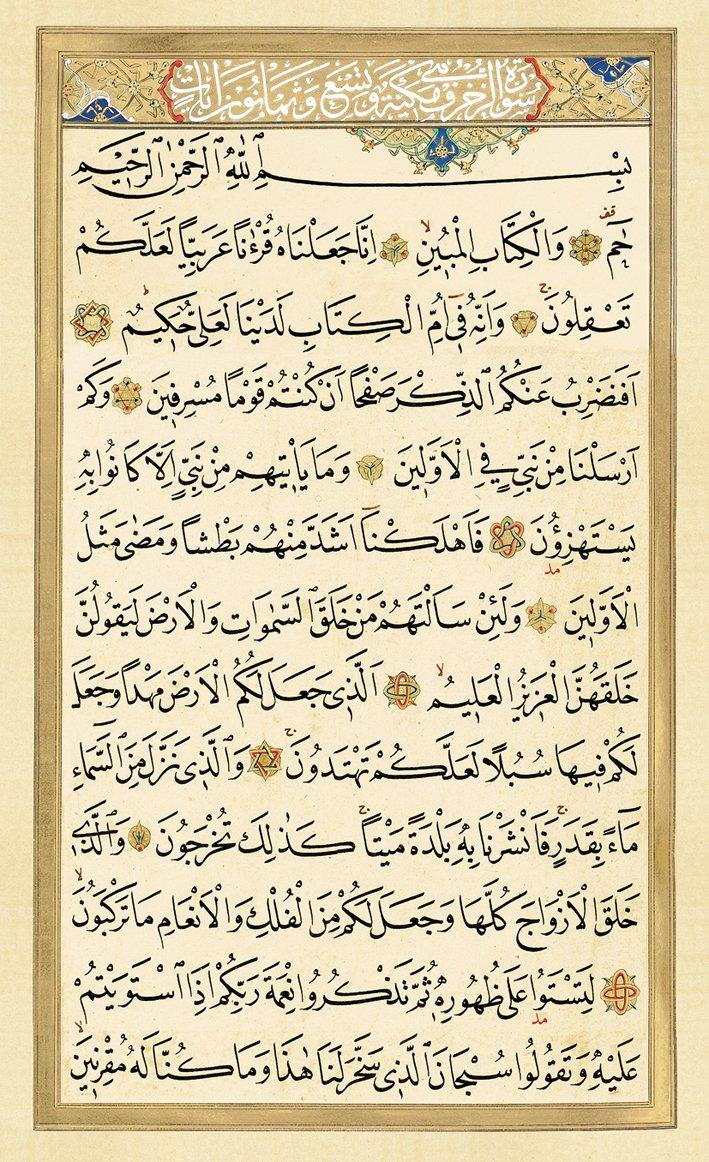 سورة الزخرف مكية وهي تسع وثمانون آيات
بِسْمِ اللّٰهِ الرَّحْمٰنِ الرَّحٖيمِ
حٰمٓ ۝ وَالْكِتَابِ الْمُبٖينِ ۝ اِنَّا جَعَلْنَاهُ قُرْءٰناً عَرَبِيًّا لَعَلَّكُمْ
تَعْقِلُونَ ۝ وَاِنَّهُ فٖٓى اُمِّ الْكِتَابِ لَدَيْنَا لَعَلِىٌّ حَكٖيمٌ ۝
اَفَنَضْرِبُ عَنْكُمُ الذِّكْرَ صَفْحًا اَنْ كُنْتُمْ قَوْمًا مُسْرِفٖينَ ۝ وَكَمْ
اَرْسَلْنَا مِنْ نَبِىٍّ فِى الْاَوَّلٖينَ ۝ وَمَا يَاْتٖيهِمْ مِنْ نَبِىٍّ اِلَّا كَانُوا بِهٖ
يَسْتَهْزِؤُنَ ۝ فَاَهْلَكْنَٓا اَشَدَّ مِنْهُمْ بَطْشاً وَمَضٰى مَثَلُ
الْاَوَّلٖينَ ۝ وَلَئِنْ سَاَلْتَهُمْ مَنْ خَلَقَ السَّمٰوَاتِ وَالْاَرْضَ لَيَقُولُنَّ
خَلَقَهُنَّ الْعَزٖيزُ الْعَلٖيمُ ۝ اَلَّذٖى جَعَلَ لَكُمُ الْاَرْضَ مَهْداً وَجَعَلَ
لَكُمْ فٖيهَا سُبُلًا لَعَلَّكُمْ تَهْتَدُونَ ۝ وَالَّذٖى نَزَّلَ مِنَ السَّمَٓاءِ
مَٓاءً بِقَدَرٍ فَاَنْشَرْنَا بِهٖ بَلْدَةً مَيْتاً كَذٰلِكَ تُخْرَجُونَ ۝ وَالَّذٖى
خَلَقَ الْاَزْوَاجَ كُلَّهَا وَجَعَلَ لَكُمْ مِنَ الْفُلْكِ وَالْاَنْعَامِ مَا تَرْكَبُونَ
۝ لِتَسْتَوُا عَلٰى ظُهُورِهٖ ثُمَّ تَذْكُرُوا نِعْمَةَ رَبِّكُمْ اِذَا اسْتَوَيْتُمْ
عَلَيْهِ وَتَقُولُوا سُبْحَانَ الَّذٖى سَخَّرَ لَنَا هٰذَا وَمَا كُنَّا لَهُ مُقْرِنٖينَ